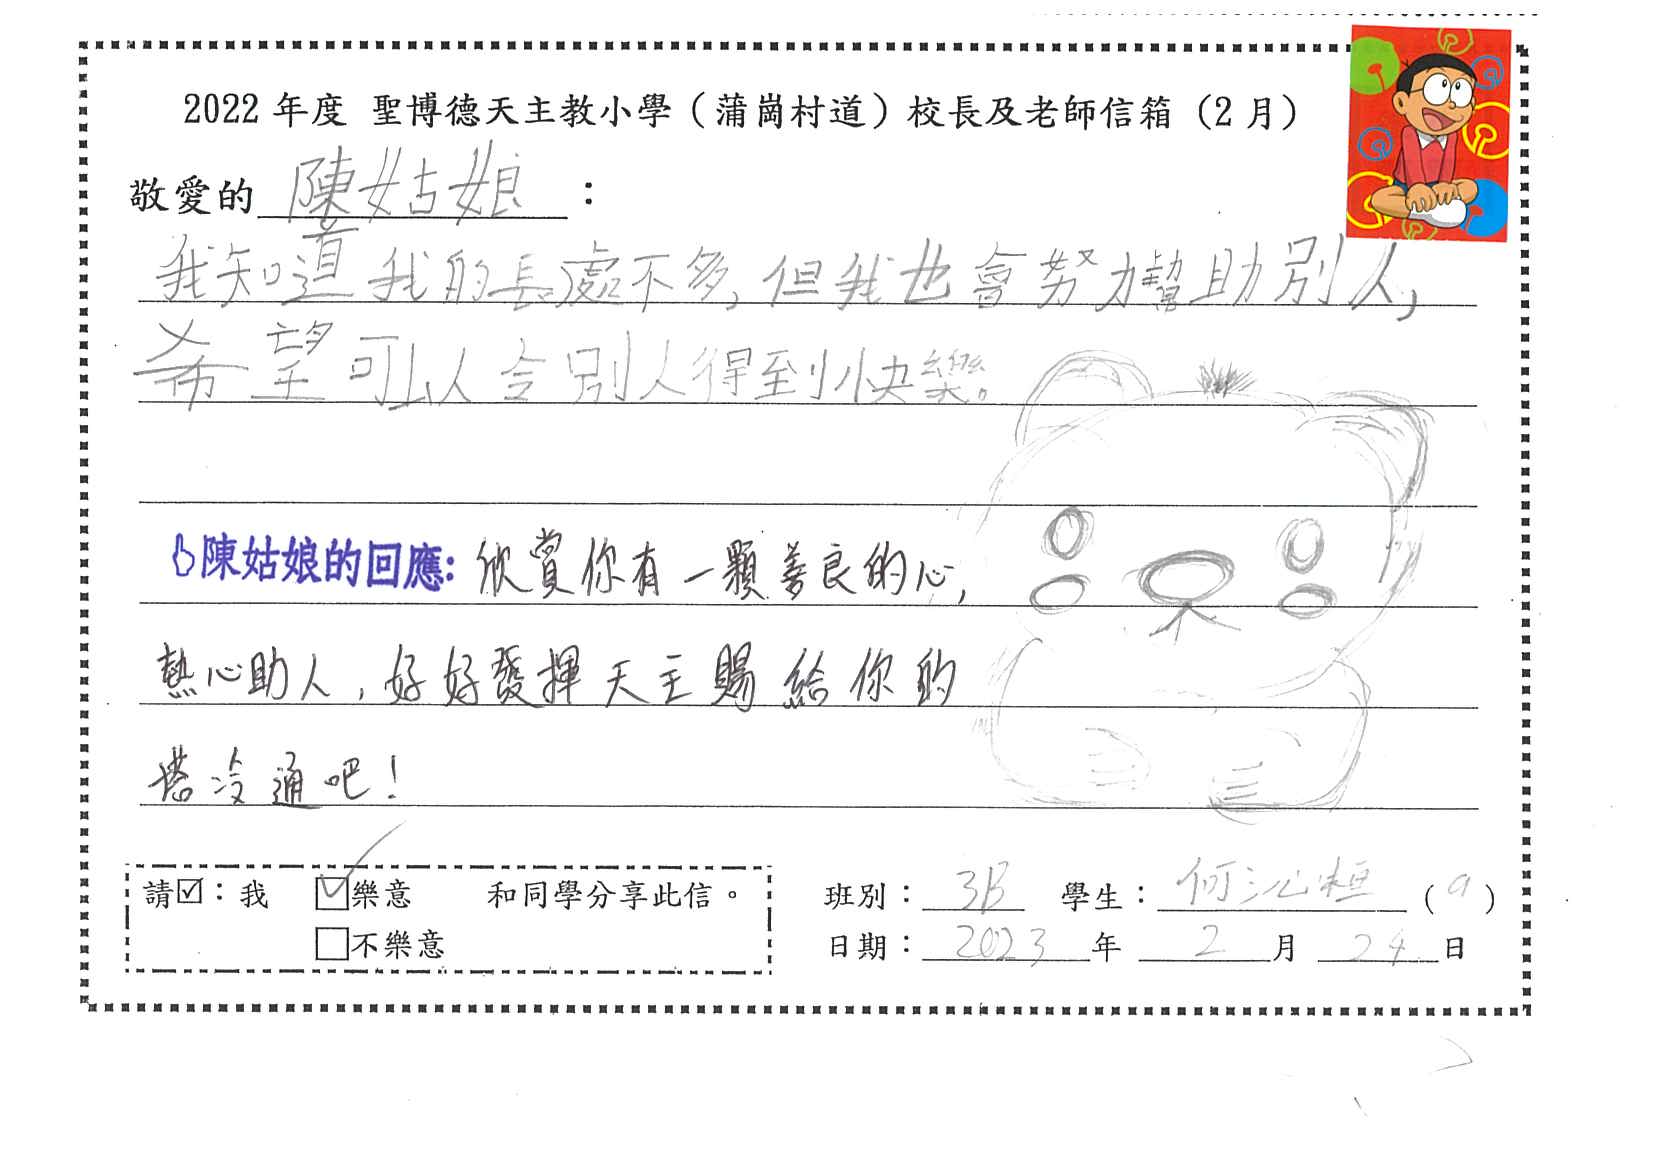 2022 年度 聖博德天主教小學（蒲崗村道）校長及老師信箱（2 月）
敬愛的 陳姑娘：
我知道我的長處不多,但我也會努力幫助別人,
希望可以令別人得到快樂。
陳姑娘的回應: 欣賞你有一顆善良的心,
熱心助人,好好發揮天主賜給你的
塔冷通吧!
請☑：我 ☑樂意 和同學分享此信。
□不樂意
班別：3B 學生：何沁桓 (9)
日期：2023 年 2 月 24 日